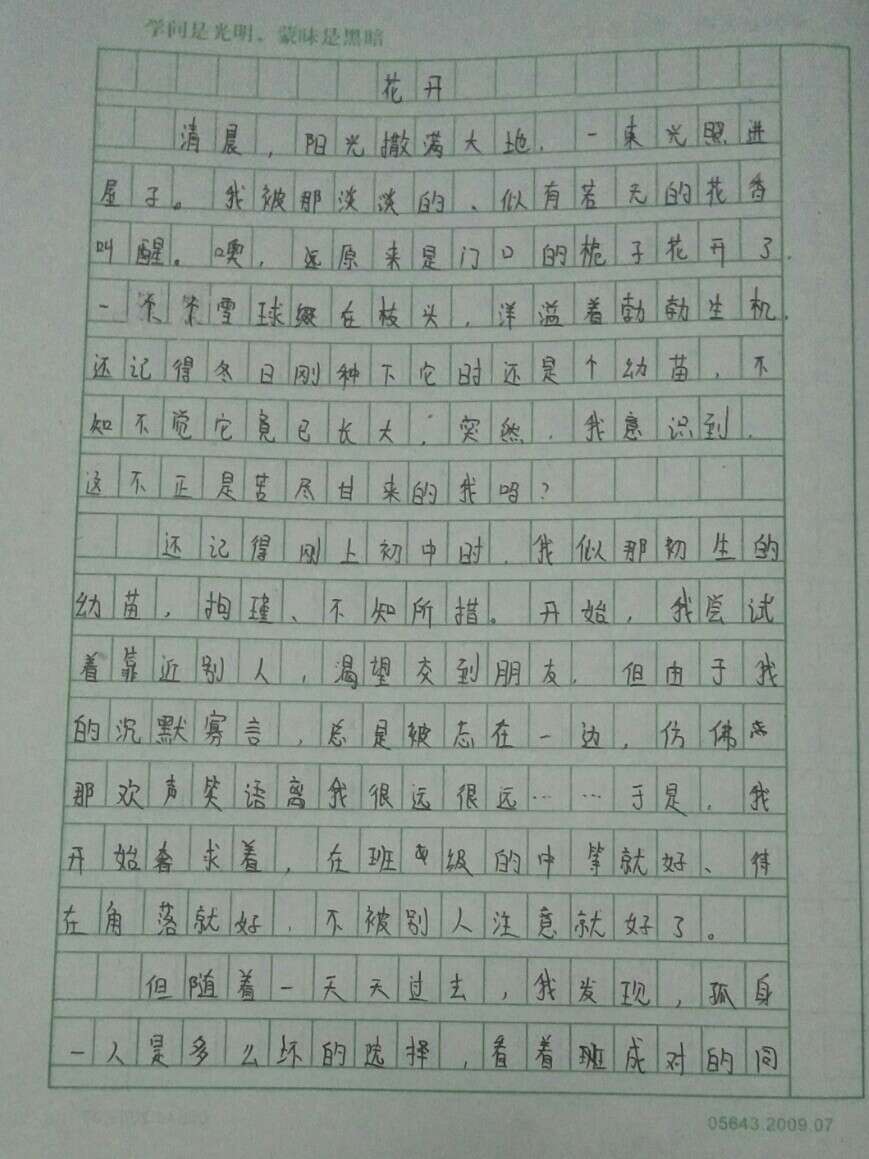 学问是光明，蒙昧是黑暗
花开
清晨，阳光撒满大地，一束光照进
屋子。我被那淡淡的、似有若无的花香
叫醒。噢，远原来是门口的栀子花开了，
一朵朵雪球缀在枝头，洋溢着勃勃生机，
还记得冬日刚种下它时还是个幼苗，不
知不觉它竟已长大；突然，我意识到，
这不正是苦尽甘来的我吗？
还记得刚上初中时，我似那初生的
幼苗，拘瑾、不知所措。开始，我尝试
着靠近别人，渴望交到朋友，但由于我
的沉默寡言，总是被忘在一边，仿佛
那欢声笑语离我很远很远……于是，我
开始奢求着，在班级的中等就好、待
在角落就好，不被别人注意就好了。
但随着一天天过去，我发现，孤身
一人是多么坏的选择，看着班成对的同
05643.2009.07